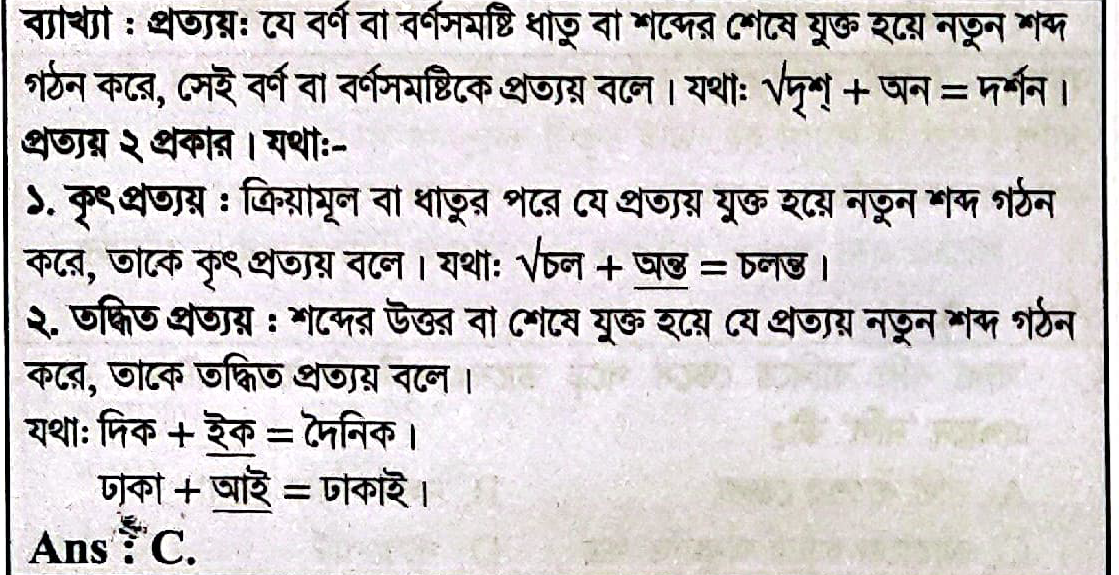 ব্যাখ্যা : প্রত্যয়: যে বর্ণ বা বর্ণসমষ্টি ধাতু বা শব্দের শেষে যুক্ত হয়ে নতুন শব্দ
গঠন করে, সেই বর্ণ বা বর্ণসমষ্টিকে প্রত্যয় বলে। যথা: √দৃশ্ + অন = দর্শন।
প্রত্যয় ২ প্রকার। যথা:-
১. কৃৎ প্রত্যয় : ক্রিয়ামূল বা ধাতুর পরে যে প্রত্যয় যুক্ত হয়ে নতুন শব্দ গঠন
করে, তাকে কৃৎ প্রত্যয় বলে। যথা: √চল + অন্ত = চলন্ত।
২. তদ্ধিত প্রত্যয় : শব্দের উত্তর বা শেষে যুক্ত হয়ে যে প্রত্যয় নতুন শব্দ গঠন
করে, তাকে তদ্ধিত প্রত্যয় বলে।
যথা: দিক + ইক = দৈনিক।
ঢাকা + আই = ঢাকাই।
Ans : C.